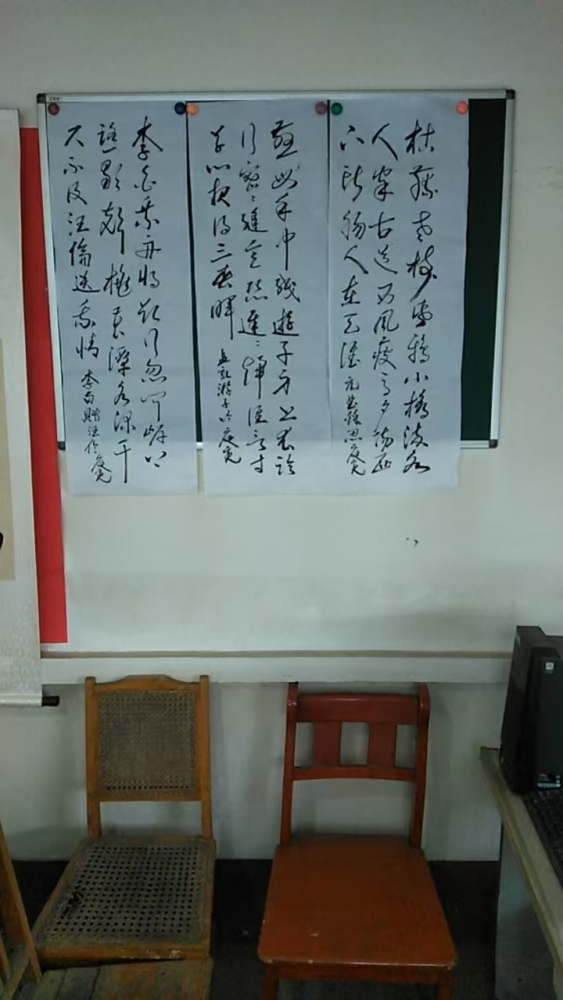 枯藤老树昏鸦小桥流水
人家古道西风瘦马夕阳西
下断肠人在天涯
慈母手中线游子身上衣临
行密密缝意恐迟迟归谁言寸
草心报得三春晖 孟郊游子吟
李白乘舟将欲行忽闻岸上
踏歌声桃花潭水深千
尺不及汪伦送我情 李白赠汪伦